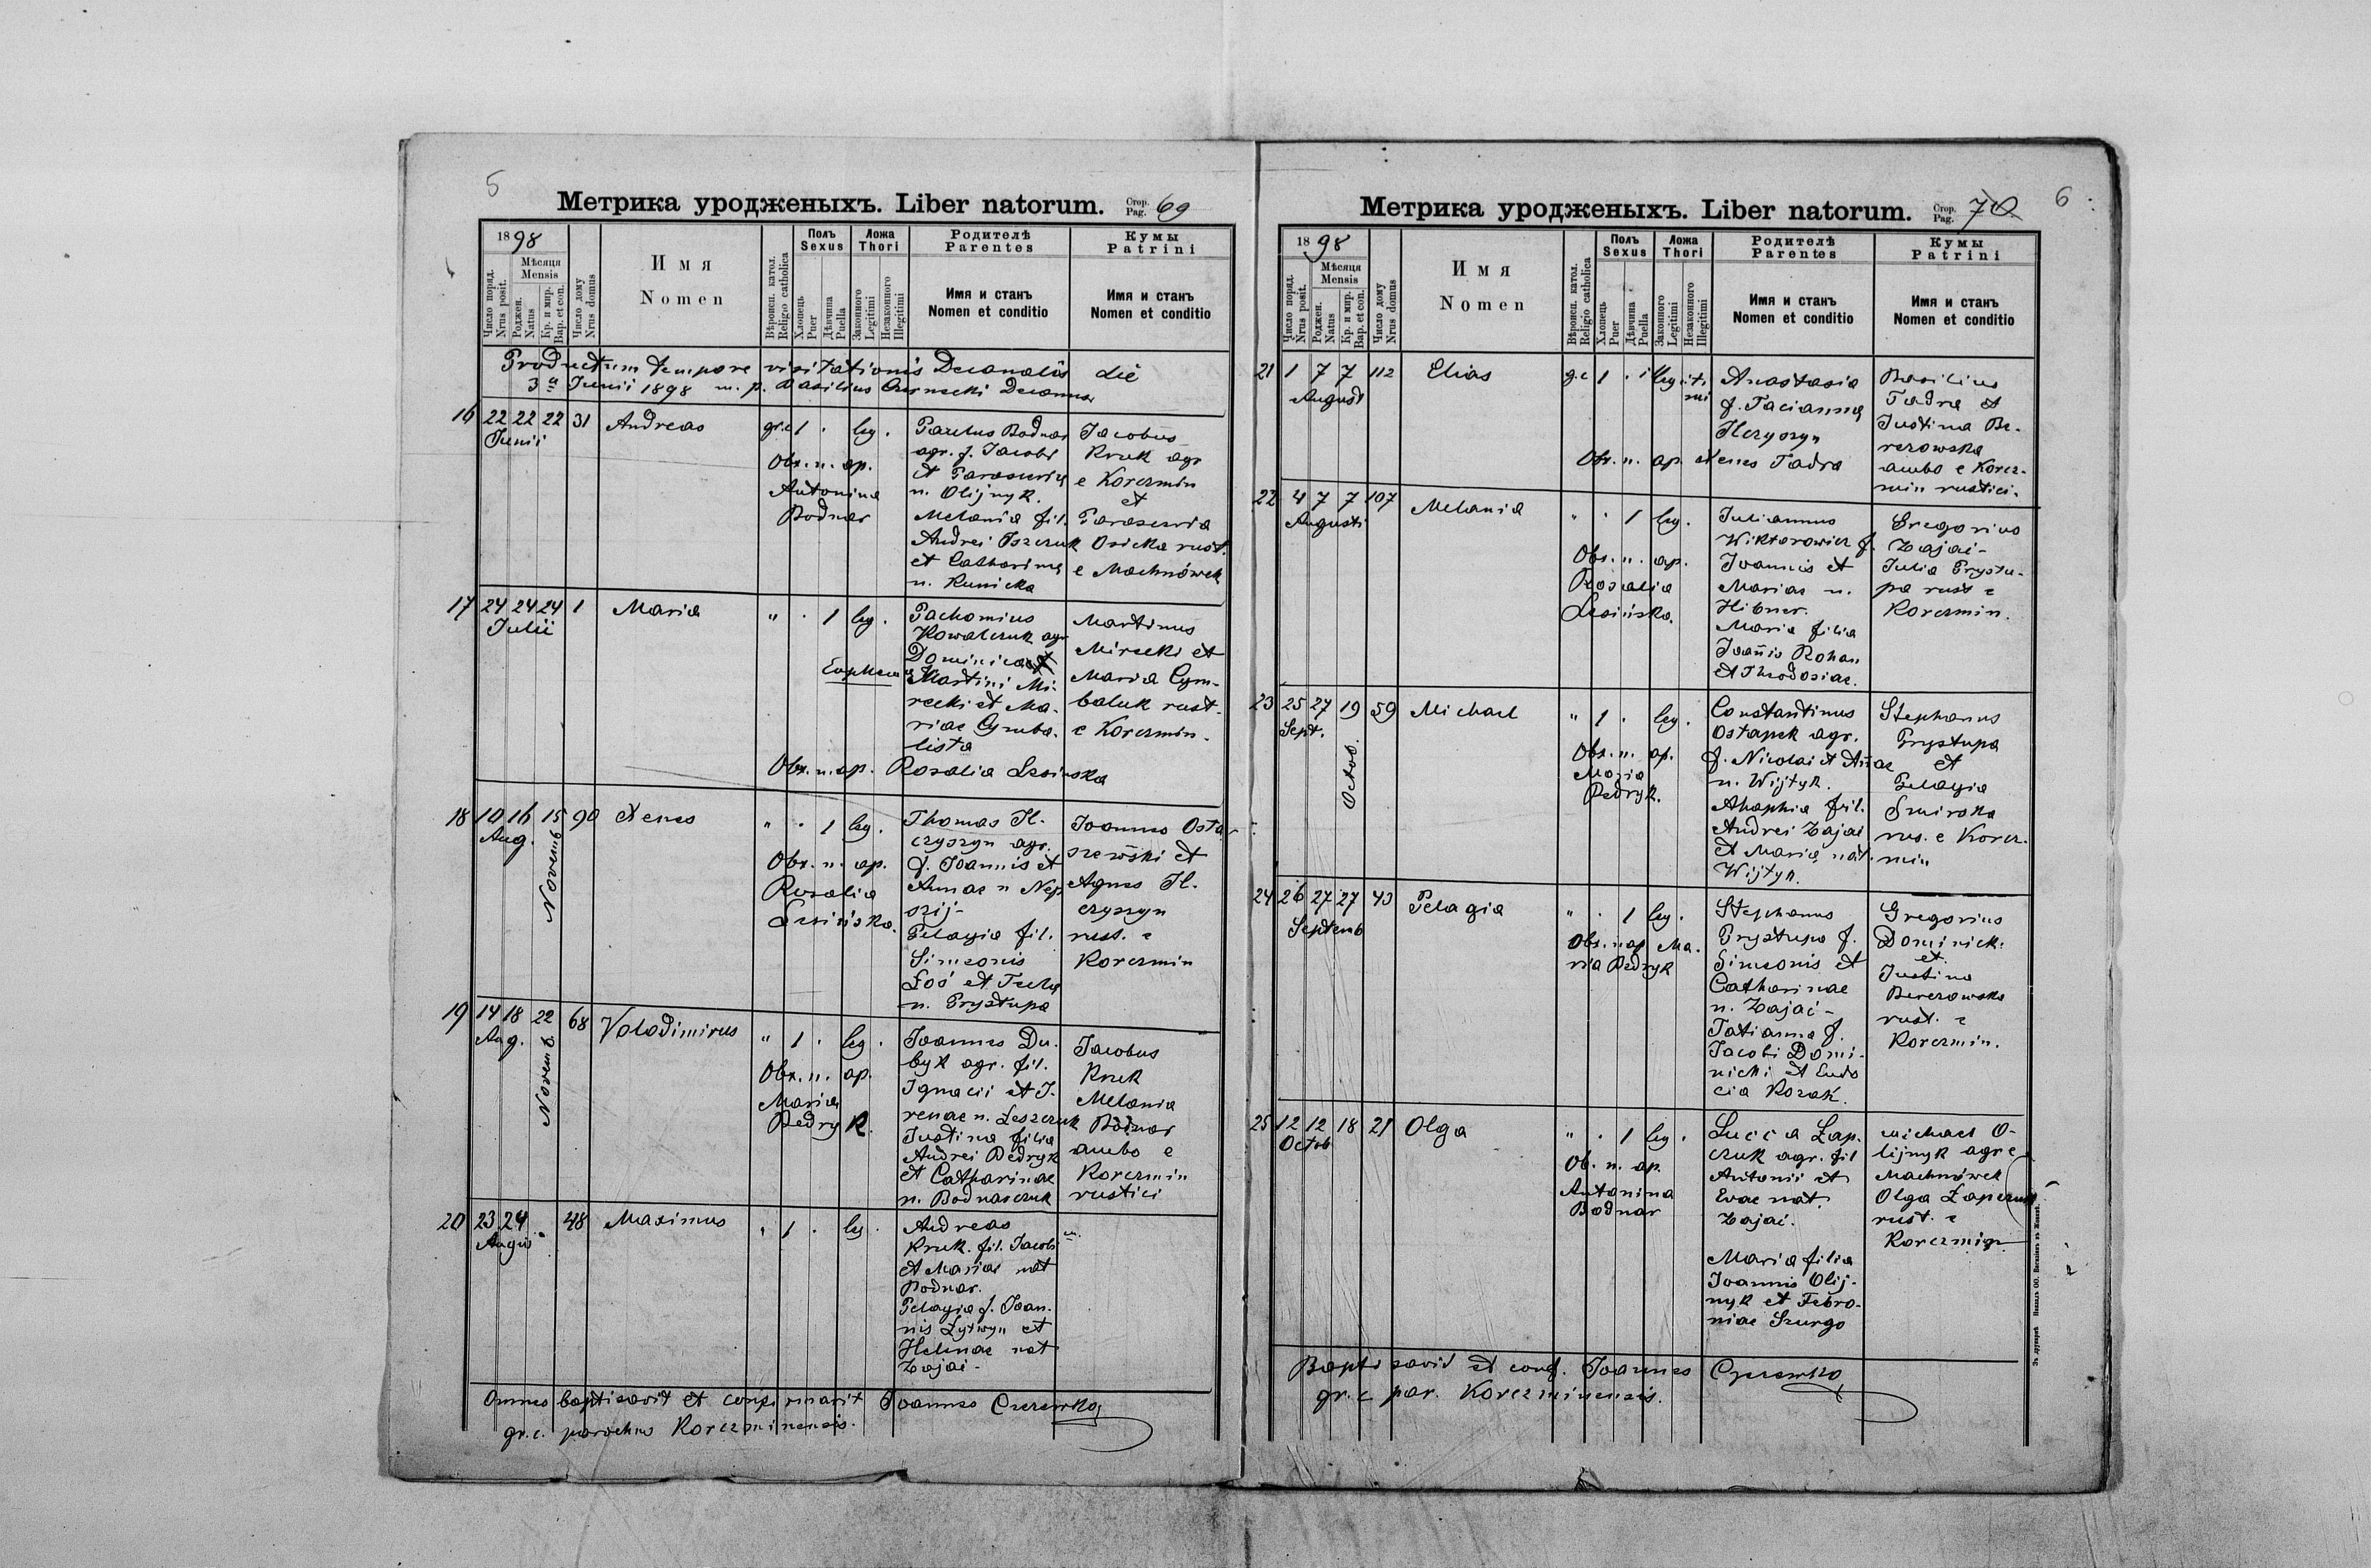 5
Метрика уродженыхъ. Liber natorum. Стор. Pag. 69
1898
Число поряд. Nrus posit.
Мѣсяця Mensis
Роджен. Natus
Кр. и мир. Bap. et con.
Число дому Nrus domus
Имя Nomen
Вѣроисп. катол. Religio catholica
Полъ Sexus
Хлопець Puer
Дѣвчина Puella
Ложа Thori
Законного Legitimi
Незаконного Illegitimi
Родителѣ Parentes
Имя и станъ Nomen et conditio
Кумы Patrini
Имя и станъ Nomen et conditio
Productum tempore visitationis Decanalis die
3 Junii 1898 m. p. Basilius Decanus
16 22 22 22 31 Andreas gr.c 1 . leg.
Junii
Obx. n. ap.
Antonina
Bodnar
Paulus Bodnar
agr. f. Jacobi
et Parasceviae
n. Olijnyk.
Melania fil.
Andrei Iszczuk
et Catharinae
n. Kunicka
Jacobus
Kruk agr
e Korczmin
et
Parascevia
Osicka rust.
e Machnówek
17 24 24 24 1 Maria " . 1 leg.
Julii
Pachomius
Kowalczuk agr
Dominica et
Martini Mi-
recki et Ma-
riae Cymba-
lista
Martinus
Mirecki et
Maria Cym-
baluk rust.
e Korczmin.
Obx. n. ap. Rosalia Lesinska
18 10 16 15 90 Xenes " . 1 leg.
Aug.
Novemb
Obx. n. ap.
Rosalia
Lesińska.
Thomas Il-
czyszyn agr.
f. Joannis et
Annae n Nep
szij-
Pelagia fil.
Simeonis
Łoś et Teclae
n. Prystupa
Joannes Osta-
szewski et
Agnes Il-
czyszyn
rust. e
Korczmin
19 14 18 22 68 Volodimirus " 1 . leg.
Aug.
Novemb.
Obx. n. ap.
Maria
Bedryk.
Joannes Du-
byk agr. fil.
Ignacii et I-
renae n. Leszczuk
Justina filia
Andrei Bedryk
et Catharinae
n. Bodnarczuk
Jacobus
Kruk
Melania
Bodnar
ambo e
Korczmin
rustici
20 23 24 48 Maximus " 1 . leg.
Augus
Andreas
Kruk. fil. Jacobi
et Mariae nat
Bodnar.
Pelagia f. Joan-
nis Łytwyn et
Helenae nat
Zajac-
Omnes baptisavit et confirmavit Joannes Czerewko
gr. c. parochus Korczminensis.
6
Метрика уродженыхъ. Liber natorum. Стор. Pag. 70
1898
Число поряд. Nrus posit.
Мѣсяця Mensis
Роджен. Natus
Кр. и мир. Bap. et con.
Число дому Nrus domus
Имя Nomen
Вѣроисп. катол. Religio catholica
Полъ Sexus
Хлопець Puer
Дѣвчина Puella
Ложа Thori
Законного Legitimi
Незаконного Illegitimi
Родителѣ Parentes
Имя и станъ Nomen et conditio
Кумы Patrini
Имя и станъ Nomen et conditio
21 1 7 7 112 Elias g.c 1 .
August
Anastasia
f. Tacianna
Ilczyszyn
Obx. n. ap. Xenes Fadra
Basilius
Fadra et
Justina Be-
rezowska
ambo e Korcz-
min rustici.
22 4 7 7 107 Melania " . 1 leg.
Augusti
Obx. n. ap.
Rosalia
Lesińska.
Juliannus
Wiktorowicz f.
Joannis et
Mariae n.
Hibner.
Maria filia
Joannis Rohan
et Theodosiae.
Gregorius
Zajac-
Julia Prystu-
pa rust e
Korczmin.
23 25 27 19 59 Michael " 1 . leg.
Sept.
Octob.
Obx. n. ap.
Maria
Bedryk.
Constantinus
Ostapek agr.
f. Nicolai et Annae
n. Wijtyk.
Ahaphia fil.
Andrei Zajac
et Mariae nat.
Wijtyk.
Stephanus
Prystupa
et
Pelagia
Smirska
rus. e Korcz-
min
24 26 27 27 43 Pelagia " . 1 leg.
Septemb
Obx. n ap Ma-
ria Bedryk
Stephanus
Prystupa f.
Simeonis et
Catharinae
n. Zajac-
Tatianna f.
Jacobi Domi-
nicki et Eudo
cia Kozak.
Gregorius
Dominick.
et
Justina
Berezowska
rust. e
Korczmin.
25 12 12 18 21 Olga " . 1 leg.
Octob
Ob. n. ap.
Antonina
Bodnar
Lucca Łap-
czuk agr. fil
Antonii et
Evae nat.
Zajac.
Maria filia
Joannis Olij-
nyk et Febro-
niae Szurgo
Michael O-
lijnyk agr e
Machnówek
Olga Łapczuk
rust. e
Korczmin
Baptisavit et conf. Joannes Czerewko
gr. c par. Korczminensis.